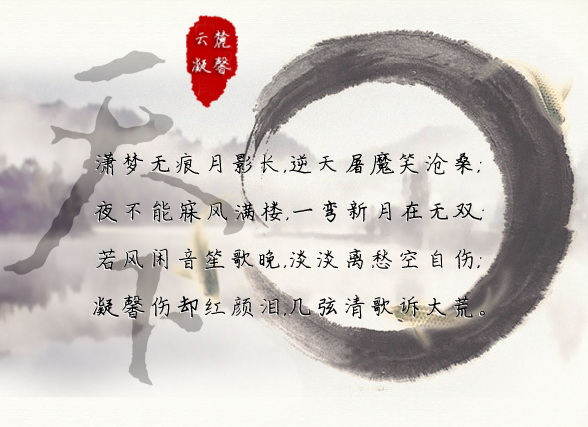 云麓
凝馨
天下
潇梦无痕月影长,逆天屠魔笑沧桑;
夜不能寐风满楼,一弯新月在无双;
若风闲音笙歌晚,淡淡离愁空自伤;
凝馨伤却红颜泪,几弦清歌诉大荒。